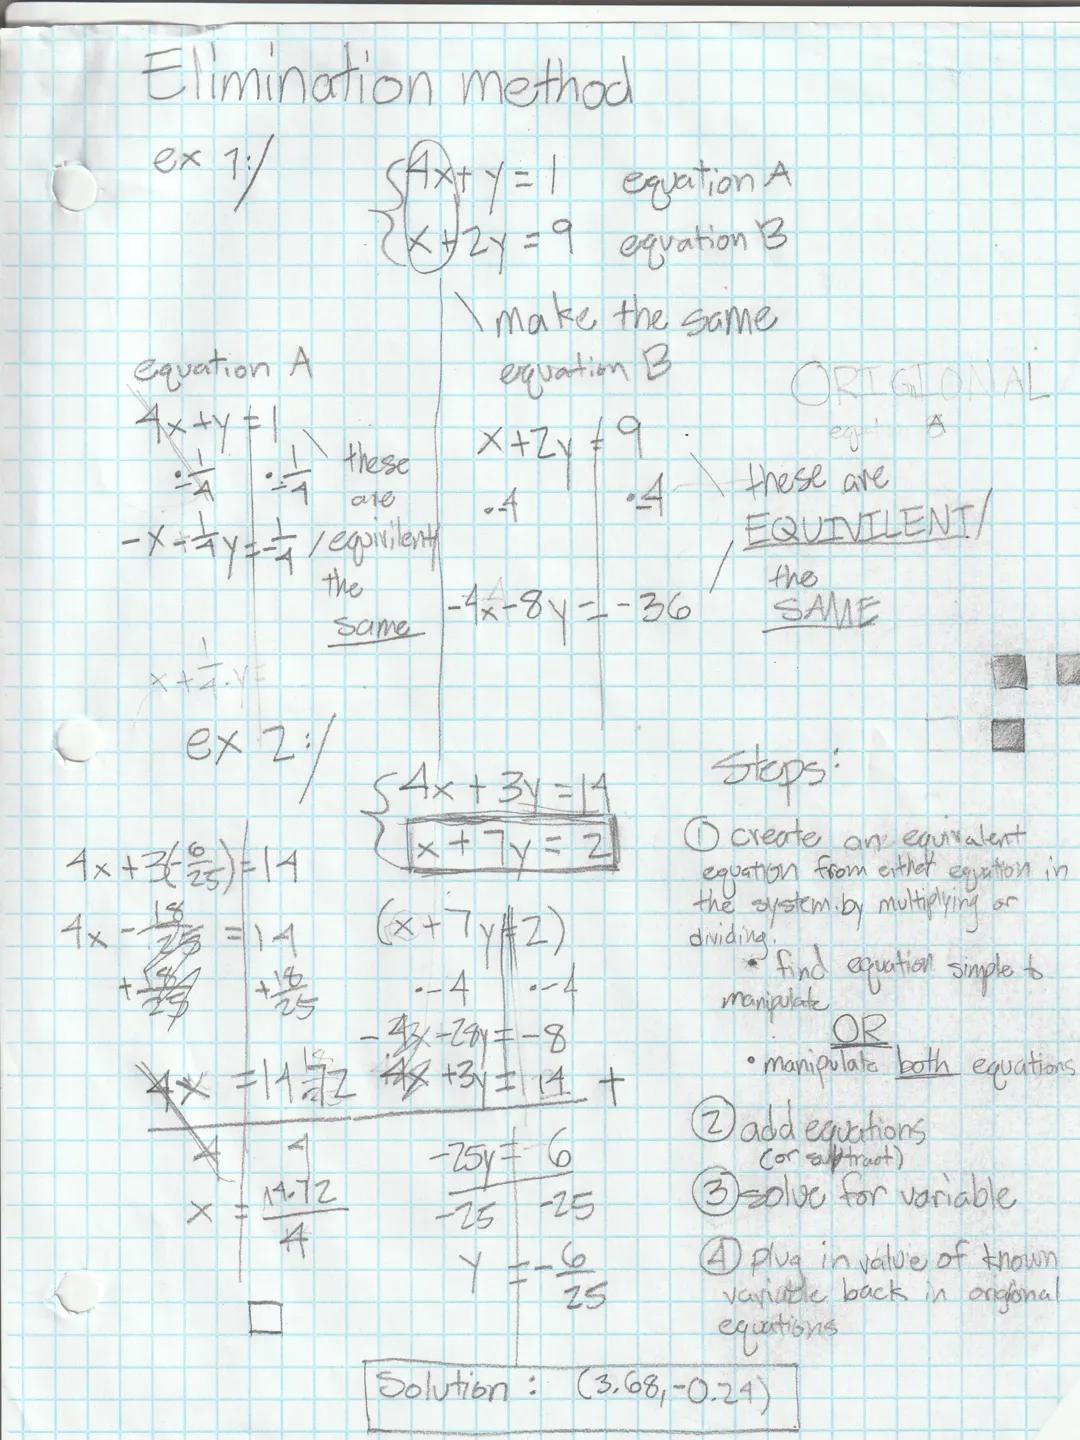 Elimination method
ex 1:/
4x + y = 1 equation A
x + 2y = 9 equation B
make the same
equation A
4x + y = 1
·-1/4 ·-1/4
-x - 1/4 y = -1/4
these
are
equivilent/
the
same
x + 1/4 · y =
equation B
x + 2y = 9
·4 ·4
-4x - 8y = -36
ORIGIONAL
these are
EQUIVILENT/
the
SAME
ex 2:/
4x + 3y = 14
x + 7y = 2
4x + 3(-6/25) = 14
4x - 18/25 = 14
+18/25 +18/25
4x = 14.72
4 4
x = 14.72/4
(x + 7y = 2)
·-4 ·-4
-4x - 28y = -8
4x + 3y = 14 +
-25y = 6
-25 -25
y = -6/25
Steps:
① create an equivalent
equation from either equation in
the system by multiplying or
dividing.
• find equation simple to
manipulate
OR
• manipulate both equations
② add equations
(or subtract)
③ solve for variable
④ plug in value of known
variable back in origional
equations
Solution: (3.68, -0.24)